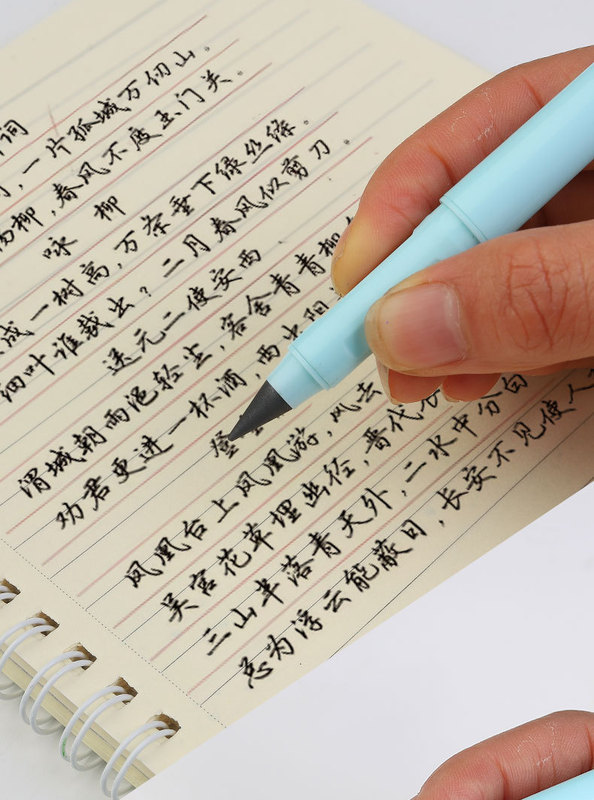 词
，一片孤城万仞山。
杨柳，春风不度玉门关。
咏 柳
成一树高，万条垂下绿丝绦。
细叶谁裁出？二月春风似剪刀。
送元二使安西
渭城朝雨浥轻尘，客舍青青柳
劝君更进一杯酒，西出阳
登
凤凰台上凤凰游，凤去
吴宫花草埋幽径，晋代衣
三山半落青天外，二水中分白
总为浮云能蔽日，长安不见使人